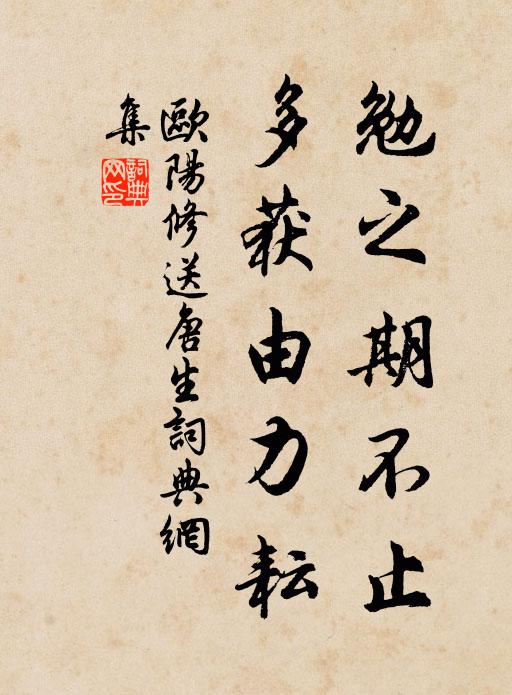 勉之期不止
多获由力耘
歐陽修送唐生詞典網
集
詞典网印